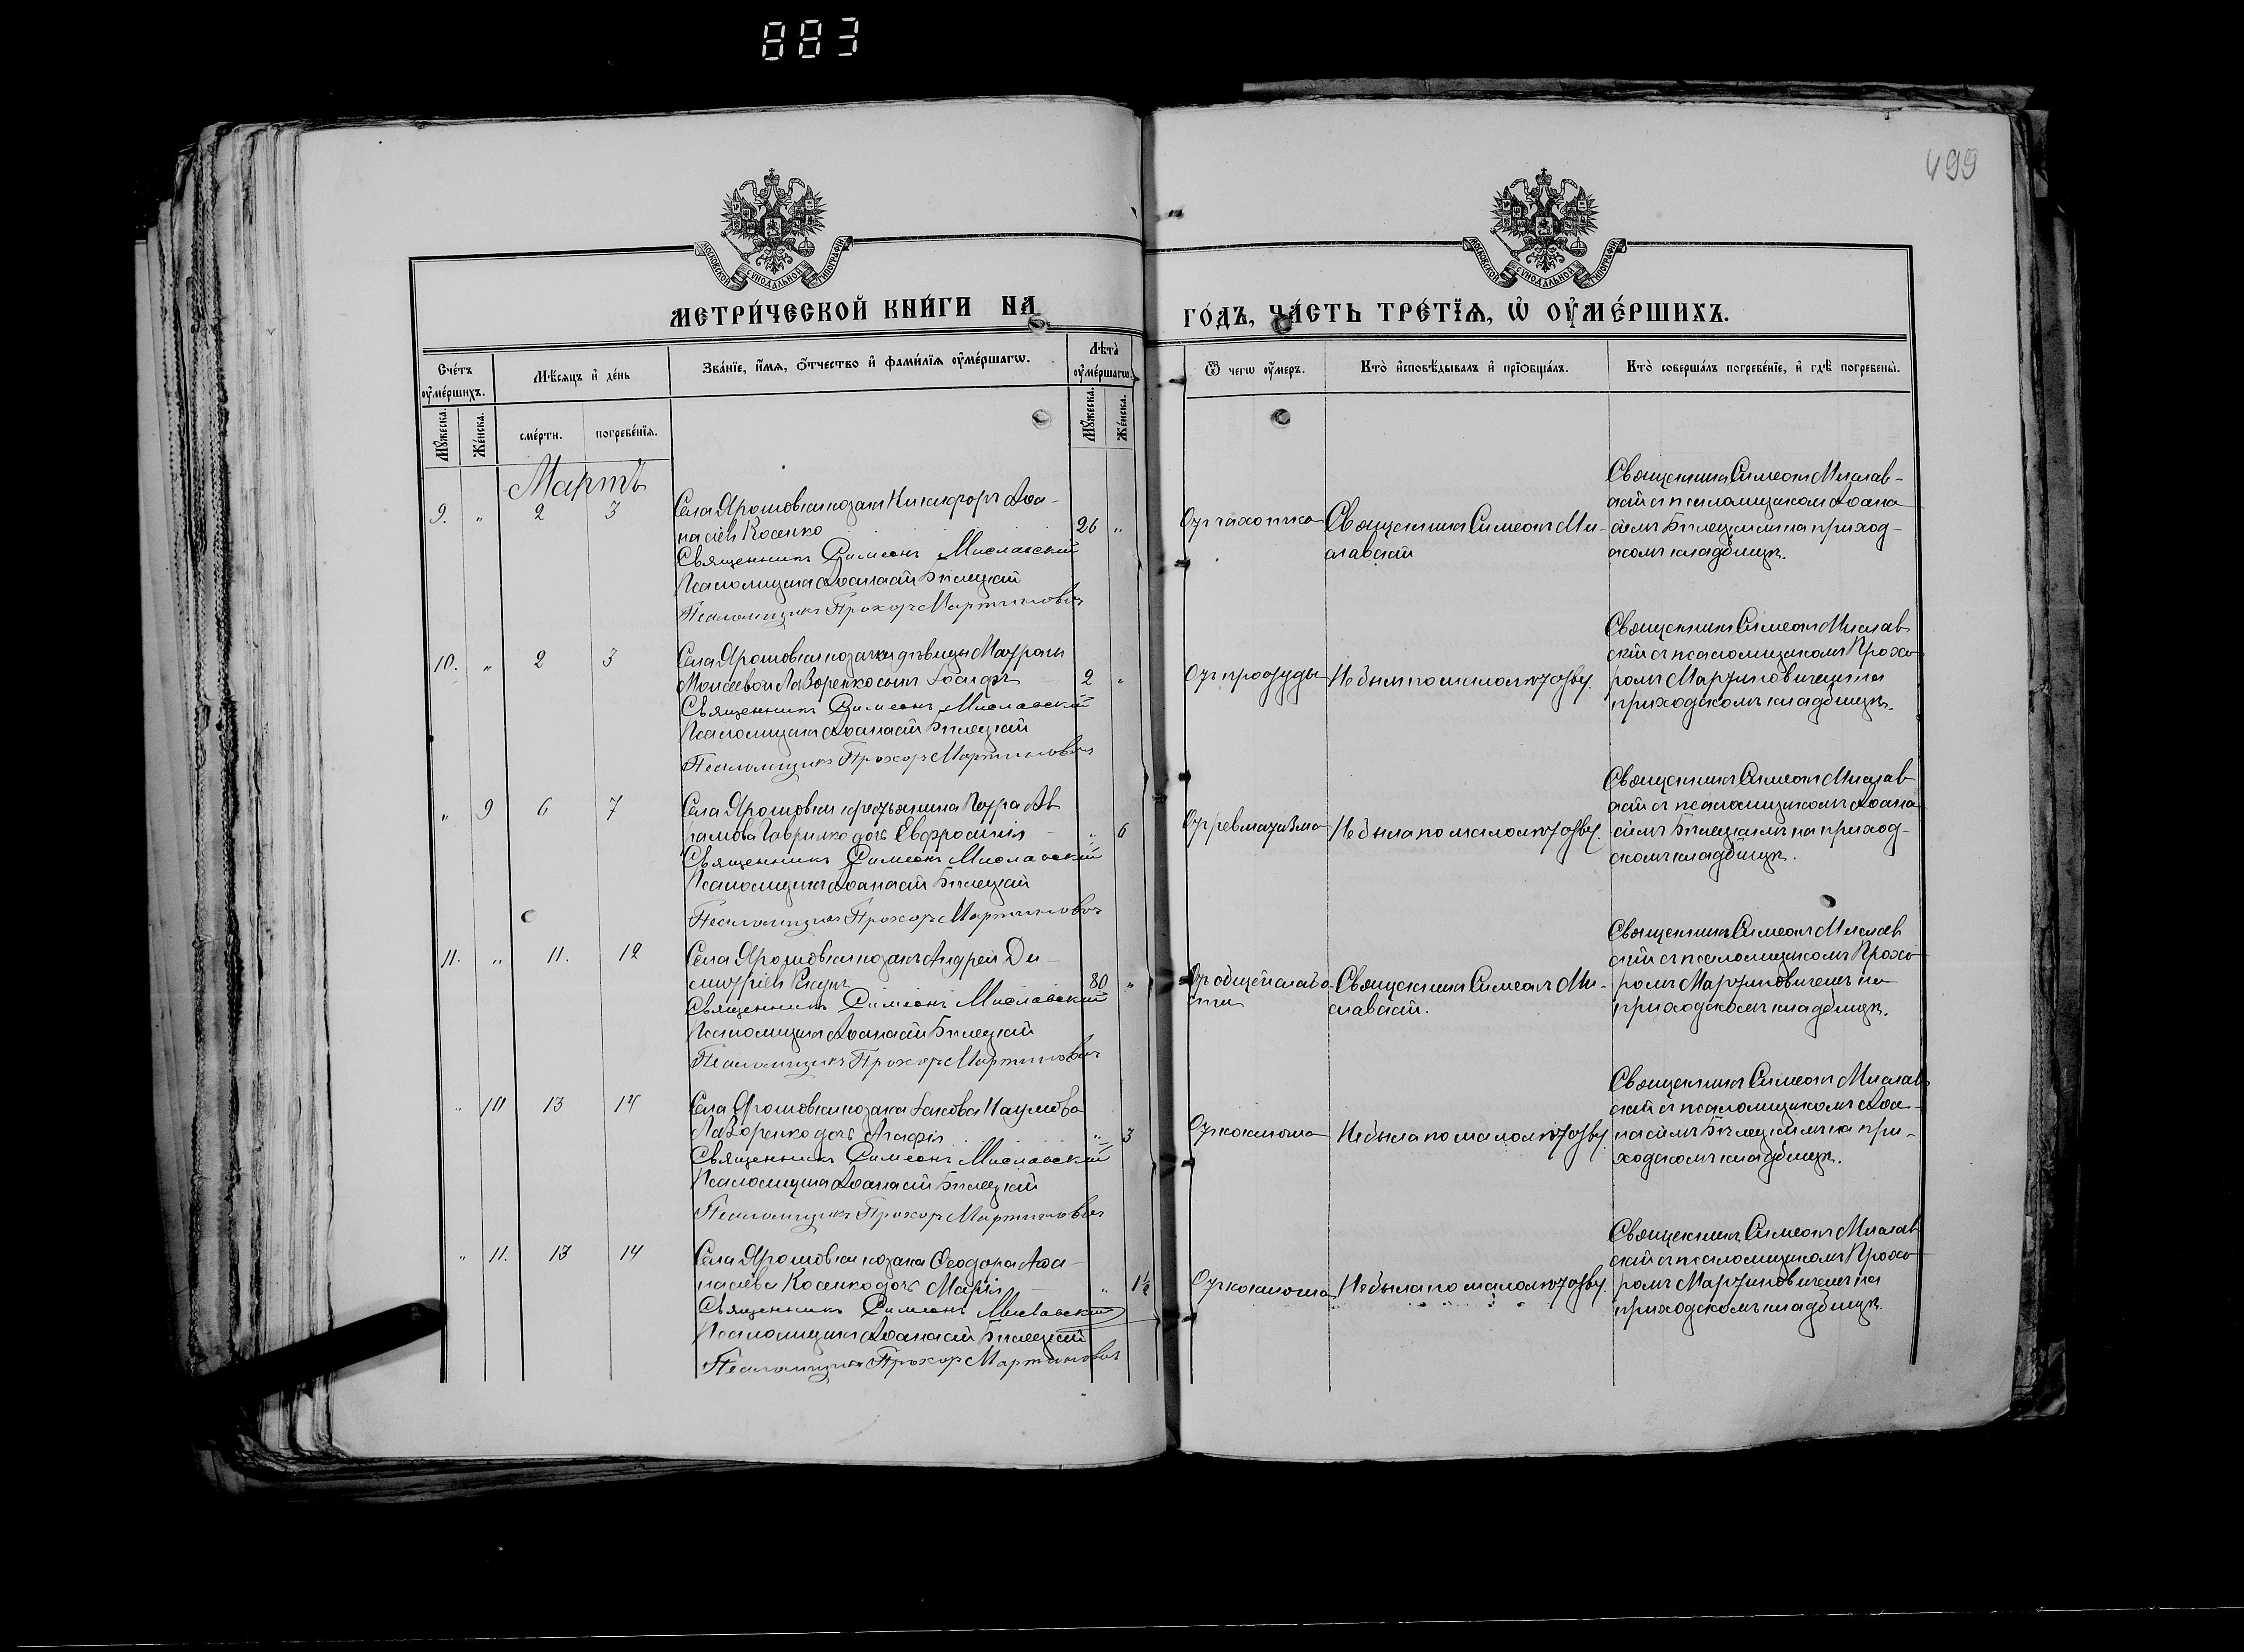 883
499
МОСКОВСКОЙ СѴНОДАЛЬНОЙ ТИПОГРАФІИ
МОСКОВСКОЙ СѴНОДАЛЬНОЙ ТИПОГРАФІИ
МЕТРИ́ЧЕСКОЙ КНИ́ГИ НА
ГО́ДЪ, ЧА́СТЬ ТРЕ́ТЇѦ, Ѡ҆ ОУ҆МЕ́РШИХЪ.
Сче́тъ оу҆ме́ршихъ.
Мѣ́сѧцъ и҆ де́нь
Зва́нїе, и҆́мѧ, ѻ҆́тчество и҆ фами́лїѧ оу҆ме́ршагѡ.
Лѣта̀ оу҆ме́ршагѡ.
Ѿ чегѡ оу҆́меръ.
Кто̀ и҆сповѣ́дывалъ и҆ прїѡбща́лъ.
Кто̀ соверша́лъ погребе́нїе, и҆ гдѣ̀ погребены̀.
Мꙋ́жеска.
Же́нска.
сме́рти.
погребе́нїѧ.
Мꙋ́жеска.
Же́нска.
Мартъ
9. " 2 3 Села Ярошовки козакъ Никифоръ Аѳа-
насіевъ Косенко 26 "
Священникъ Симеонъ Миславскій
Псаломщикъ Аѳанасій Бѣлецкій
Псаломщикъ Прохоръ Мартиновичъ
Отъ чахотки
Священникъ Симеонъ Ми-
славскій
Священникъ Симеонъ Мислав-
скій съ псаломщикомъ Аѳана
сіемъ Бѣлецкимъ на приход-
скомъ кладбищѣ.
10. " 2 3 Села Ярошовки козачки дѣвицы Мавры
Моисеевой Лазоренковой сынъ Іосифъ 2 "
Священникъ Симеонъ Миславскій
Псаломщикъ Аѳанасій Бѣлецкій
Псаломщикъ Прохоръ Мартиновичъ
Отъ простуды
Не былъ по малолѣтству.
Священникъ Симеонъ Мислав
скій съ псаломщикомъ Прохо
ромъ Мартиновичемъ на
приходскомъ кладбищѣ.
" 9 6 7 Села Ярошовки крестьянина Петра Ав
рамова Гаврилко дочь Евфросинія " 6
Священникъ Симеонъ Миславскій
Псаломщикъ Аѳанасій Бѣлецкій
Псаломщикъ Прохоръ Мартиновичъ
Отъ ревматизма
Не была по малолѣтству.
Священникъ Симеонъ Мислав
скій съ псаломщикомъ Аѳана
сіемъ Бѣлецкимъ на приход-
скомъ кладбищѣ.
11. " 11. 12 Села Ярошовки козакъ Андрей Ди-
митріевъ 80 "
Священникъ Симеонъ Миславскій
Псаломщикъ Аѳанасій Бѣлецкій
Псаломщикъ Прохоръ Мартиновичъ
Отъ общей слабо
сти
Священникъ Симеонъ Ми-
славскій.
Священникъ Симеонъ Мислав
скій съ псаломщикомъ Прохо
ромъ Мартиновичемъ на
приходскомъ кладбищѣ.
" 10 13 14 Села Ярошовки козака Іакова Наумова
Лазоренко дочь Агафія " 3
Священникъ Симеонъ Миславскій
Псаломщикъ Аѳанасій Бѣлецкій
Псаломщикъ Прохоръ Мартиновичъ
Отъ коклюша
Не была по малолѣтству
Священникъ Симеонъ Мислав
скій съ псаломщикомъ Аѳа-
насіемъ Бѣлецкимъ на при-
ходскомъ кладбищѣ.
" 11. 13 14 Села Ярошовки козака Ѳеодора Аѳа-
насіева Косенко дочь Марія " 1½
Священникъ Симеонъ Миславскій
Псаломщикъ Аѳанасій Бѣлецкій
Псаломщикъ Прохоръ Мартиновичъ
Отъ коклюша
Не была по малолѣтству.
Священникъ Симеонъ Мислав
скій съ псаломщикомъ Прохо
ромъ Мартиновичемъ на
приходскомъ кладбищѣ.